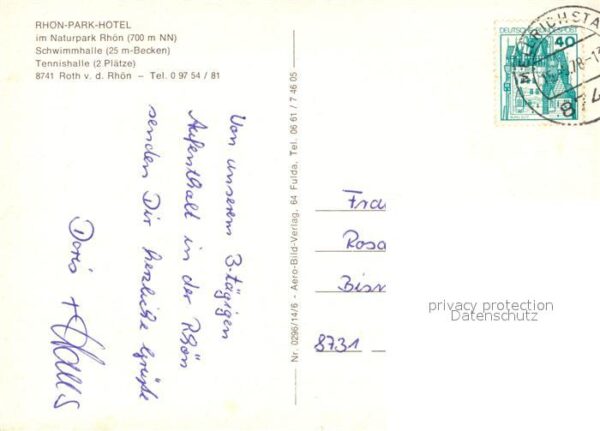 RHÖN-PARK-HOTEL
im Naturpark Rhön (700 m NN)
Schwimmhalle (25 m-Becken)
Tennishalle (2 Plätze)
8741 Roth v. d. Rhön – Tel. 0 97 54 / 81
Von unserem 3-tägigen
Aufenthalt in der Rhön
senden Dir herzliche Grüße
Doris + Hans
Nr. 0296/14/6 - Aero-Bild-Verlag, 64 Fulda, Tel. 06 61 / 7 46 05
DEUTSCHE BUNDESPOST
40
Frau
Rosa
8731
privacy protection
Datenschutz